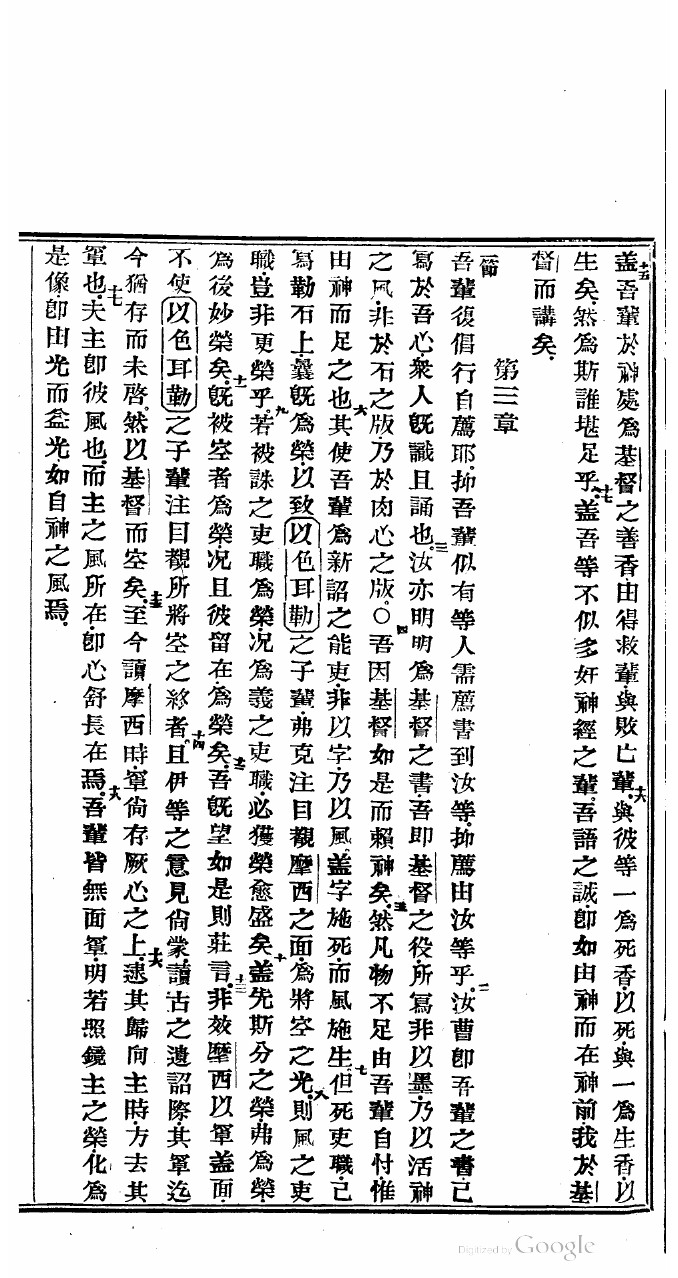 十五盖吾輩於神處爲基督之善香由得救輩與敗亡輩十六與彼等一爲死香以死與一爲生香以
生矣然爲斯誰堪足乎十七盖吾等不似多奸神經之輩吾語之誠卽如由神而在神前我於基
督而講矣
第三章
一節吾輩復倡行自薦耶抑吾輩似有等人需薦書到汝等抑薦由汝等乎二汝曹卽吾輩之書已
寫於吾心衆人旣識且誦也三汝亦明明爲基督之書吾卽基督之役所寫非以墨乃以活神
之風非於石之版乃於肉心之版〇四吾因基督如是而賴神矣五然凡物不足由吾輩自忖惟
由神而足之也六其使吾輩爲新詔之能吏非以字乃以風盖字施死而風施生七但死吏職已
寫勒石上曩旣爲榮以致以色耳勒之子輩弗克注目覩摩西之面爲將空之光八則風之吏
職豈非更榮乎九若被誅之吏職爲榮况爲義之吏職必獲榮愈盛矣十盖先斯分之榮弗爲榮
爲後妙榮矣十一旣被空者爲榮况且彼留在爲榮矣十二吾旣望如是則莊言十三非效摩西以𠖥盖面
不使以色耳勒之子輩注目覩所將空之終者十四且伊等之意見尙蒙讀古之遺詔際其𠖥迄
今猶存而未啓然以基督而空矣十五至今讀摩西時𠖥尙存厥心之上十六逮其歸向主時方去其
𠖥也十七夫主卽彼風也而主之風所在卽心舒長在焉十八吾輩皆無面𠖥明若照鏡主之榮化爲
是像卽由光而益光如自神之風焉
Digitized by Google